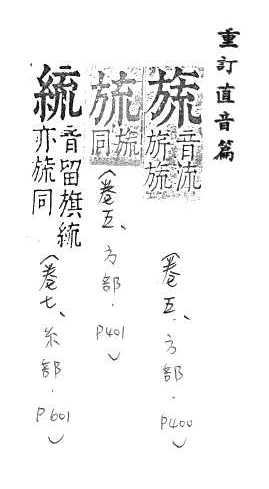 重訂直音篇
旒
音流
旂旒
（卷五、方部．P400）
旒
同
（卷五、方部．P401）
音留旗
亦旒同
（卷七、糸部．P601）